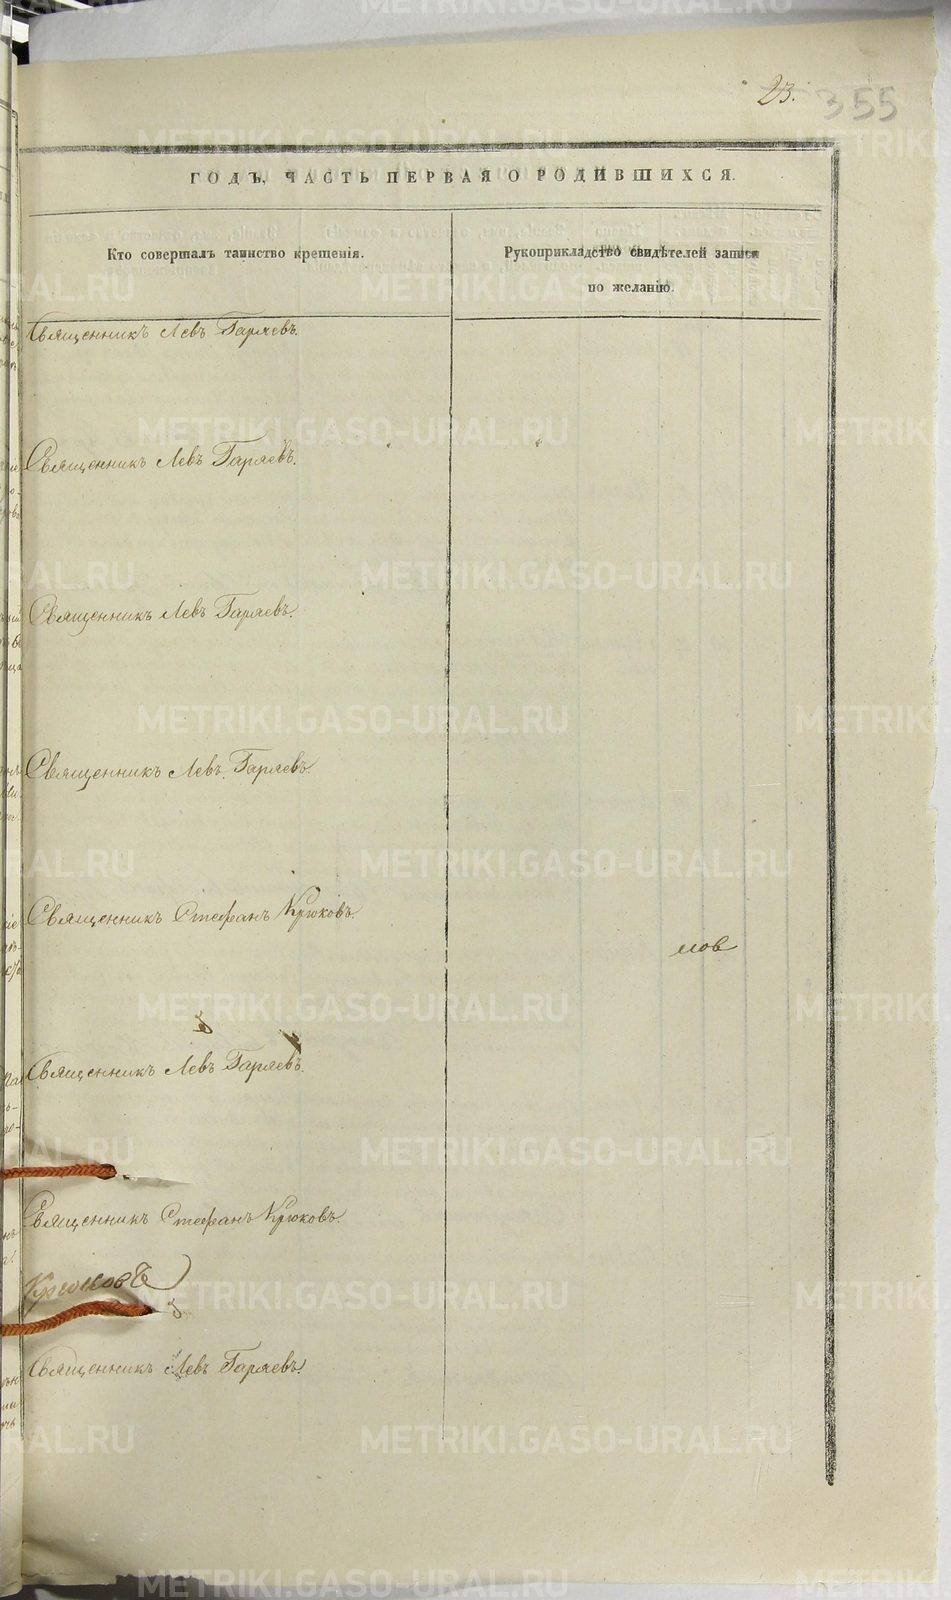 23. 355
ГОДЪ, ЧАСТЬ ПЕРВАЯ О РОДИВШИХСЯ.
Кто совершалъ таинство крещенія.
Рукоприкладство свидѣтелей записи
по желанію.
Священникъ Левъ Гаряевъ.
Священникъ Левъ Гаряевъ.
Священникъ Левъ Гаряевъ.
Священникъ Левъ Гаряевъ.
Священникъ Стефанъ Крюковъ.
мов
Священникъ Левъ Гаряевъ.
Священникъ Стефанъ Крюковъ.
Крюковъ
Священникъ Левъ Гаряевъ.
METRIKI.GASO-URAL.RU